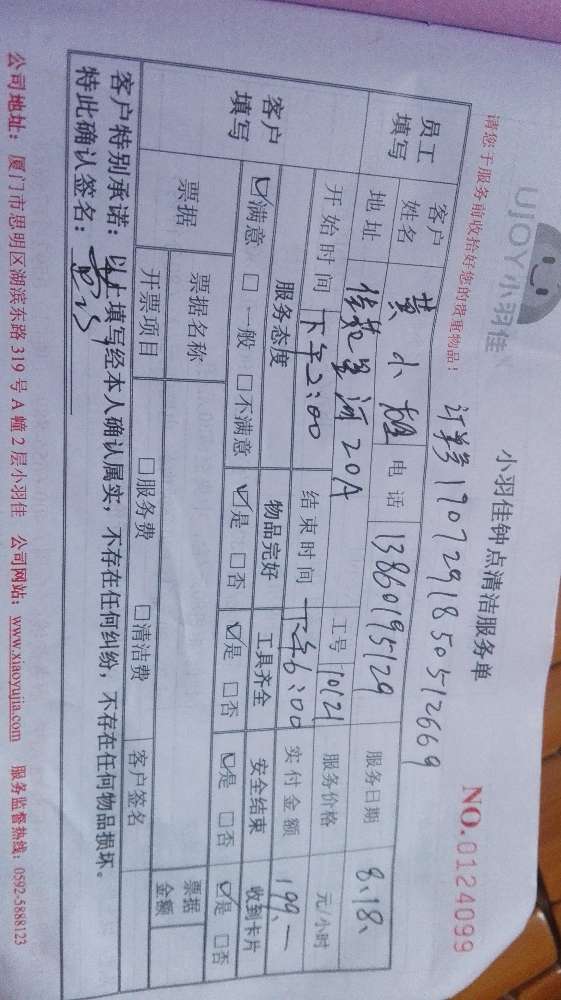 UJOY小羽佳
小羽佳钟点清洁服务单
NO.0124099
请您于服务前收拾好您的贵重物品!
订单号1907291850512669
员工填写 客户姓名 黄小姐 电话 13860195129 服务日期 8.18、
地址 佳苑星河20A 工号 10121 服务价格 元/小时
开始时间 下午2:00 结束时间 下午6:00 实付金额 199.一
客户填写 服务态度 物品完好 工具齐全 安全结束 收到卡片
☑满意 □一般 □不满意 ☑是 □否 ☑是 □否 ☑是 □否 ☑是 □否
票据 票据名称 票据金额
开票项目 □服务费 □清洁费 客户签名
客户特别承诺:以上填写经本人确认属实,不存在任何纠纷,不存在任何物品损坏。
特此确认签名:
公司地址:厦门市思明区湖滨东路319号A幢2层小羽佳 公司网站:www.xiaoyujia.com 服务监督热线:0592-5888123